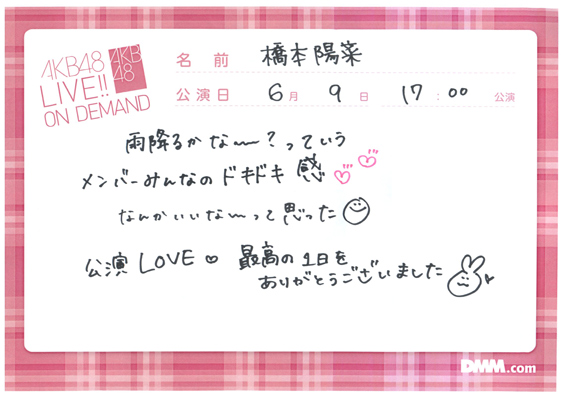 AKB48
LIVE!!
ON DEMAND
AKB
48
名前 橋本陽菜
公演日 6月 9日 17:00 公演
雨降るかな〜?っていう
メンバーみんなのドキドキ感
なんかいいな〜って思った
公演LOVE♡ 最高の1日を
ありがとうございました
DMM.com